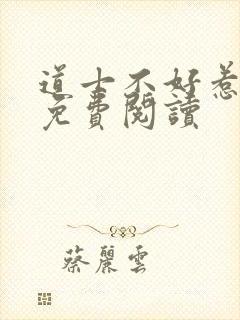 道士不好惹
免費閱讀
蔡麗雲